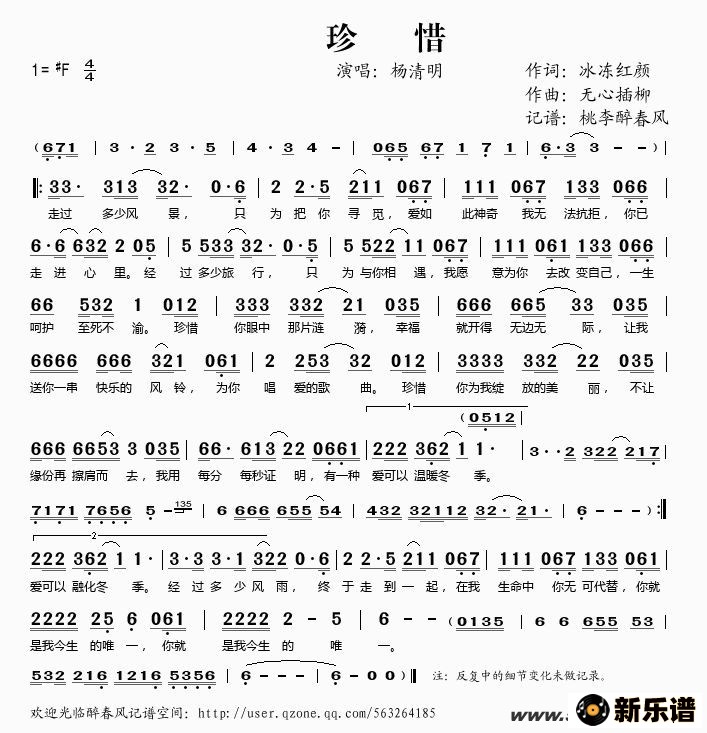 珍 惜
1= #F 4/4
演唱：杨清明
作词：冰冻红颜
作曲：无心插柳
记谱：桃李醉春风
( 671 | 3 · 2 3 · 5 | 4 · 3 4 - | 065 67 1 7 1 | 6 · 3 3 - - )|
‖: 33· 313 32· 0·6 | 2 2·5 211 067 | 111 067 133 066 |
走过 多少风 景， 只 为 把你 寻 觅， 爱如 此神奇 我无 法抗拒， 你已
6·6 632 2 05 | 5 533 32· 0·5 | 5 522 11 067 | 111 061 133 066 |
走 进 心 里。经 过 多少旅 行， 只 为 与你相 遇，我愿 意为你 去改 变自己，一生
66 532 1 012 | 333 332 21 035 | 666 665 33 035 |
呵护 至死不 渝。珍惜 你眼中 那片涟 漪，幸福 就开得 无边无 际，让我
6666 666 321 061 | 2 253 32 012 | 3333 332 22 035 |
送你一串 快乐的 风 铃，为你 唱 爱的歌 曲。珍惜 你为我绽 放的美 丽，不让
1
( 0512
666 6653 3 035 | 66· 613 22 0661 | 222 362 1 1· | 3·· 2 322 217 |
缘份再 擦肩而 去，我用 每分 每秒证 明，有一种 爱可以 温暖冬 季。
7171 7656 5 - 135 | 6 666 655 54 | 432 32112 32· 21· | 6 - - - ) :‖
2
222 362 1 1· | 3·3 3·1 322 0·6 | 2 2·5 211 067 | 111 067 133 061 |
爱可以 融化冬 季。 经 过 多 少 风 雨， 终 于 走 到 一 起，在我 生命中 你无 可代替，你就
2222 25 6 061 | 2222 2 - 5 | 6 - - - | ( 0135 | 6 6 655 53 |
是我今生 的唯 一，你就 是我今生 的 唯 一。
532 216 1216 5356 | 6 - - - | 6 - 0 0 ) ‖
注：反复中的细节变化未做记录。
欢迎光临醉春风记谱空间：http://user.qzone.qq.com/563264185
新乐谱